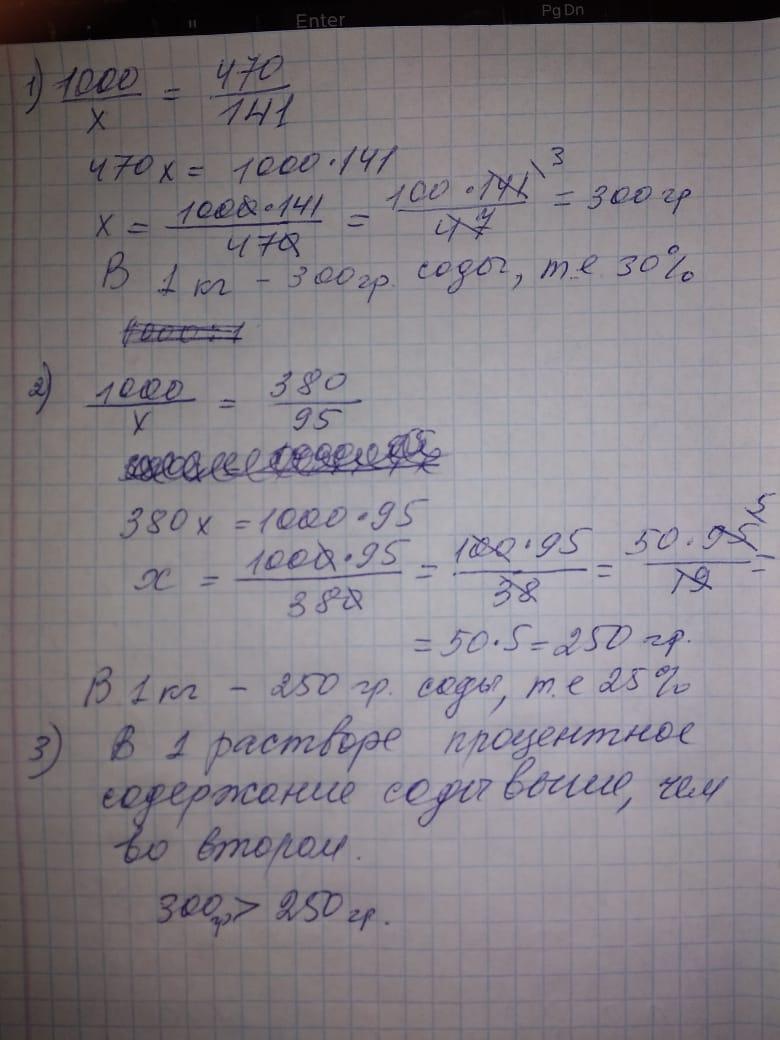 Enter
PgDn
1) 1000/x = 470/141
470x = 1000·141
x = 1000·141/470 = 100·141/47 3 = 300 гр
В 1 кг – 300 гр. соды, т.е 30%
1000 : 1
2) 1000/x = 380/95
380x = 1000·95
x = 1000·95/380 = 100·95/38 = 50·95/19 5 =
= 50·5 = 250 гр.
В 1 кг – 250 гр. соды, т.е 25%
3) В 1 растворе процентное
содержание соды выше, чем
во втором.
300гр > 250 гр.